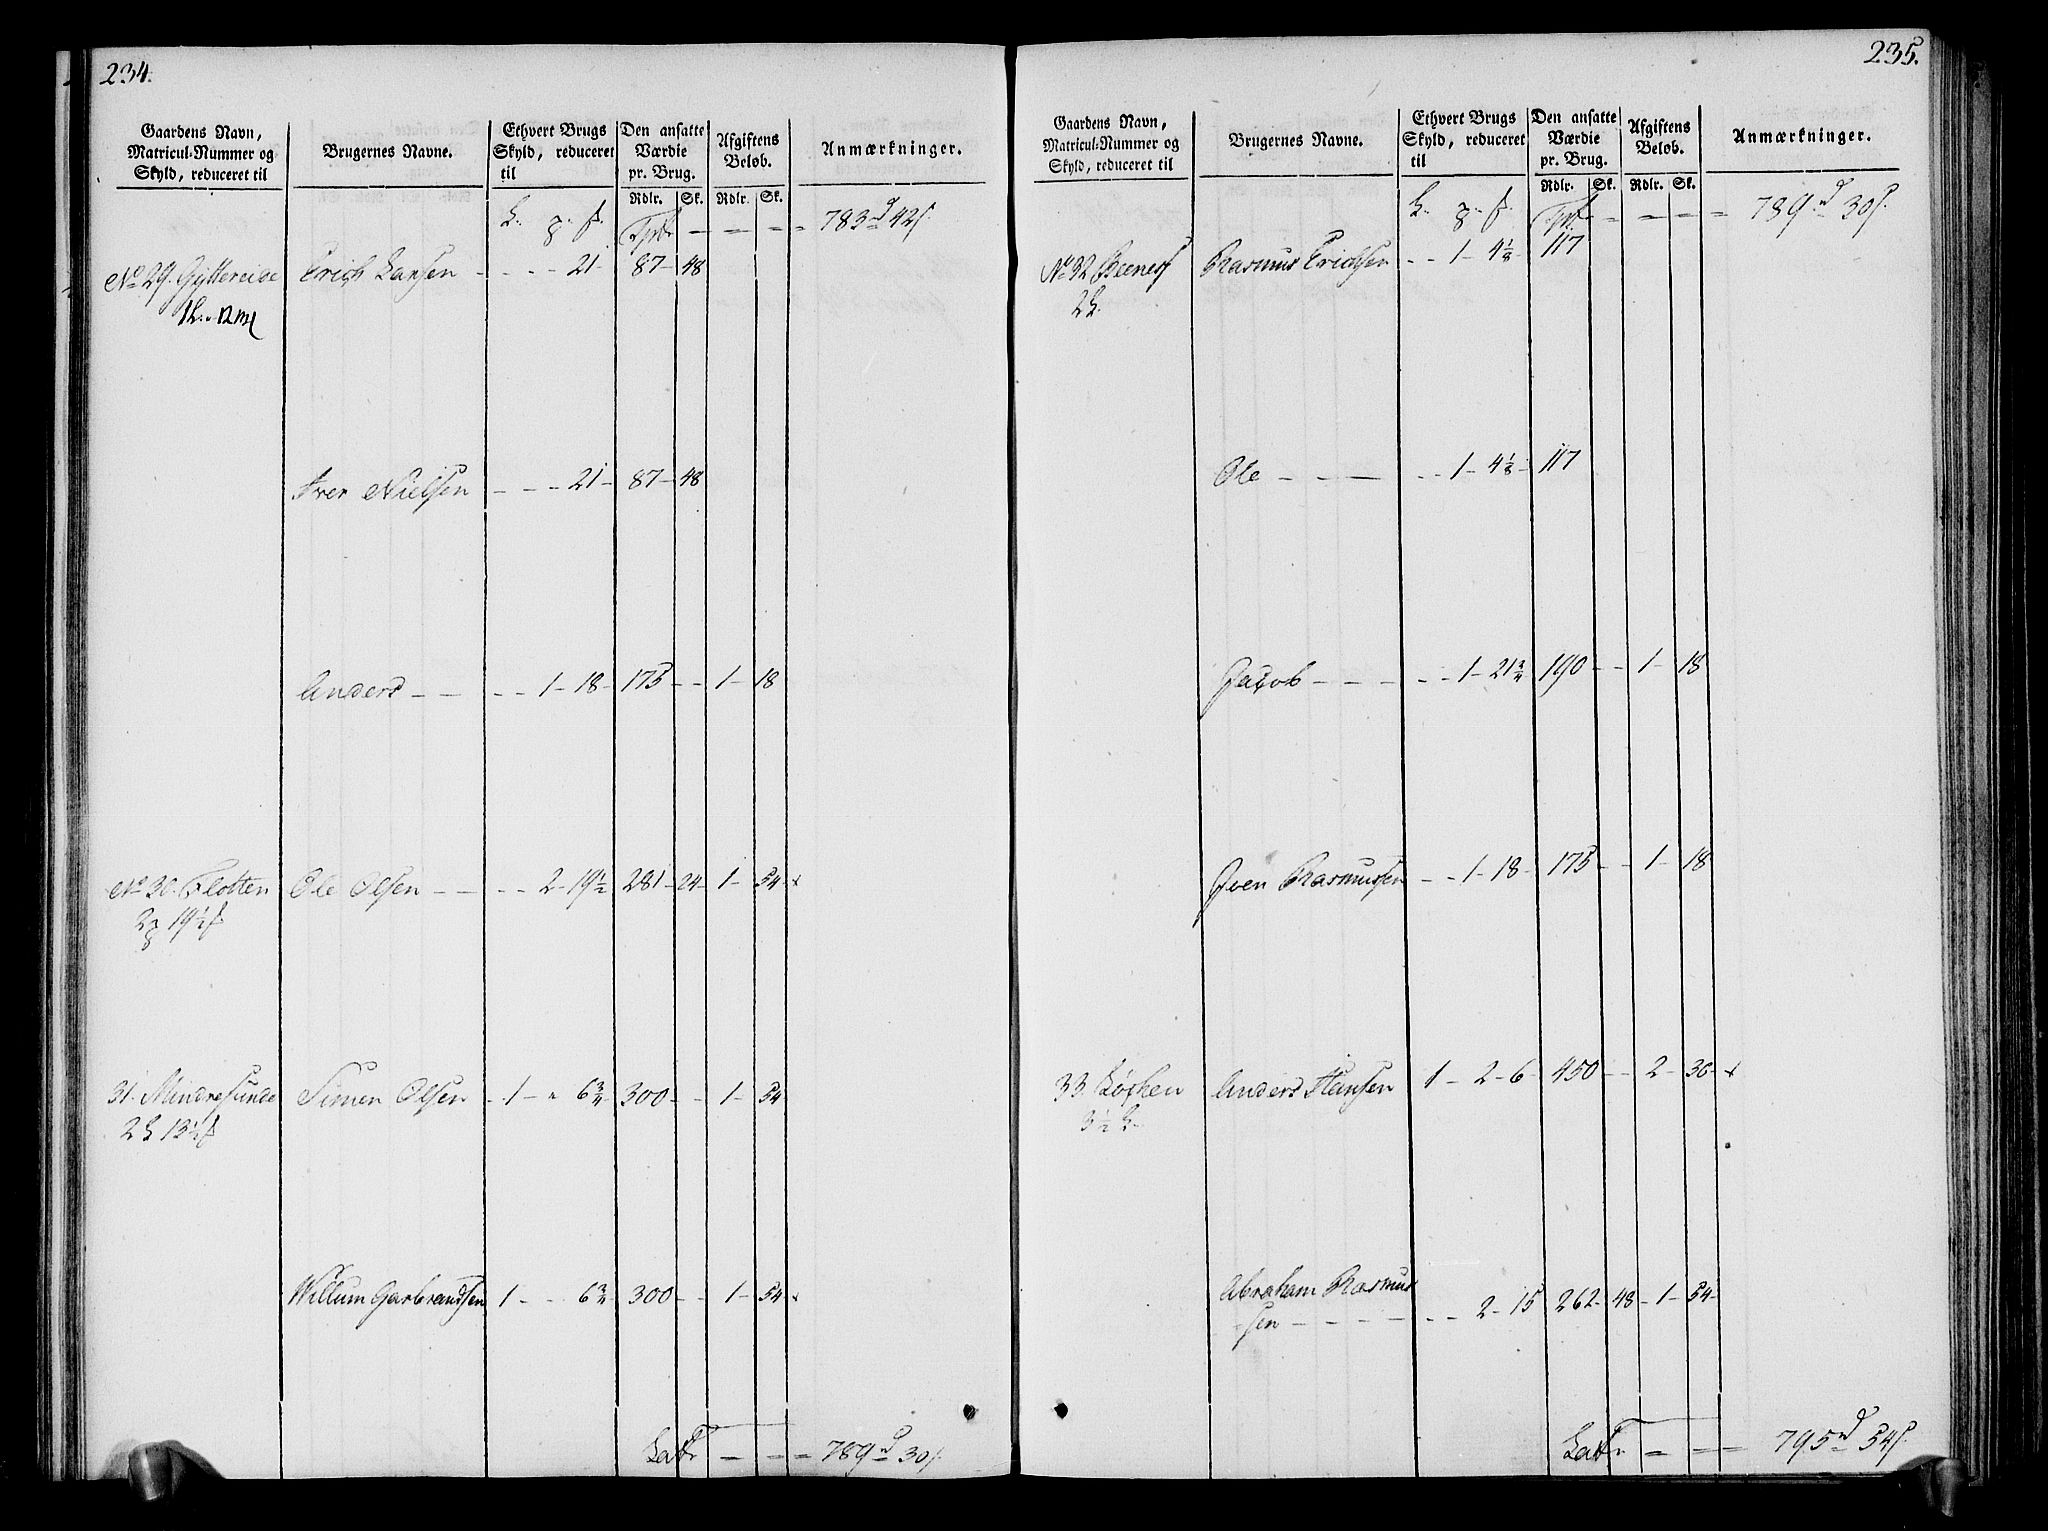 234.
Gaardens Navn, Matricul-Nummer og Skyld, reduceret til
Brugernes Navne.
Ethvert Brugs Skyld, reduceret til
Den ansatte Værdie pr. Brug.
Afgiftens Beløb.
Anmærkninger.
Rdlr. Sk. Rdlr. Sk.
Tprt - - - - 783 d 42 s.
No 29. Gyttereide Erich Larsen - - - - 21 - 87 - 48
1 L. - 12 m
Iver Nielsen - - - 21 - 87 - 48
Anders - - - - 1 - 18 - 175 - - 1 - 18
No 30. Flotten Ole Olsen - - - - 2 - 19 1/2 281 - 24 - 1 - 54 x
2 19 1/2
31. Mindresunde Simen Olsen - 1 - " 6 3/4 300 - - 1 - 54
2 13 1/2
Willum Garbrandsen 1 - - 6 3/4 300 - - 1 - 54 x
Latr - - - - 789 d 30 s.
235.
Gaardens Navn, Matricul-Nummer og Skyld, reduceret til
Brugernes Navne.
Ethvert Brugs Skyld, reduceret til
Den ansatte Værdie pr. Brug.
Afgiftens Beløb.
Anmærkninger.
Rdlr. Sk. Rdlr. Sk.
Tprt - - - - 789 d 30 s.
No 32 Beenes Rasmus Erichsen - - 1 - 4 1/8 - 117
2
Ole - - - - - 1 - 4 1/8 - 117
Jacob - - - - - 1 - 21 3/4 190 - - 1 - 18
Iven Rasmussen - - 1 - 18 - 175 - - 1 - 18
33. Løfhen Anders Hansen 1 - 2 - 6 - 450 - - 2 - 30 - x
3 1/2
Abraham Rasmus
sen - - - - - - 2 - 15 262 - 48 - 1 - 54 -
Latr - - - 795 d 54 s.